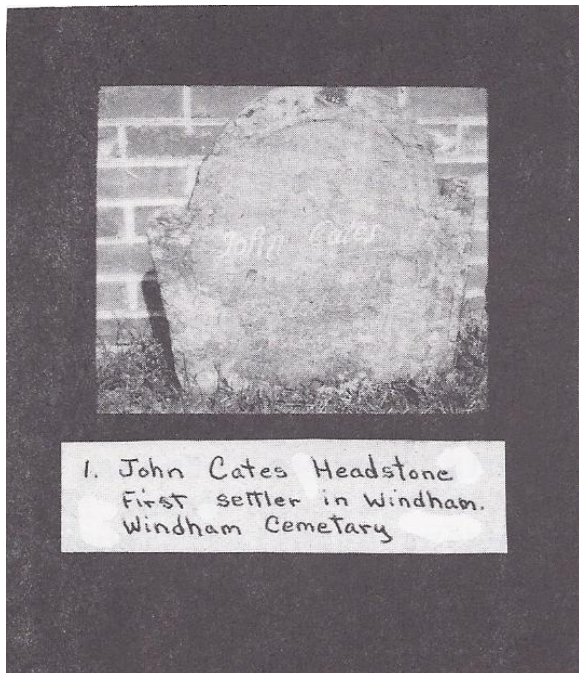 John Cates
1. John Cates Headstone
First settler in Windham.
Windham Cemetary